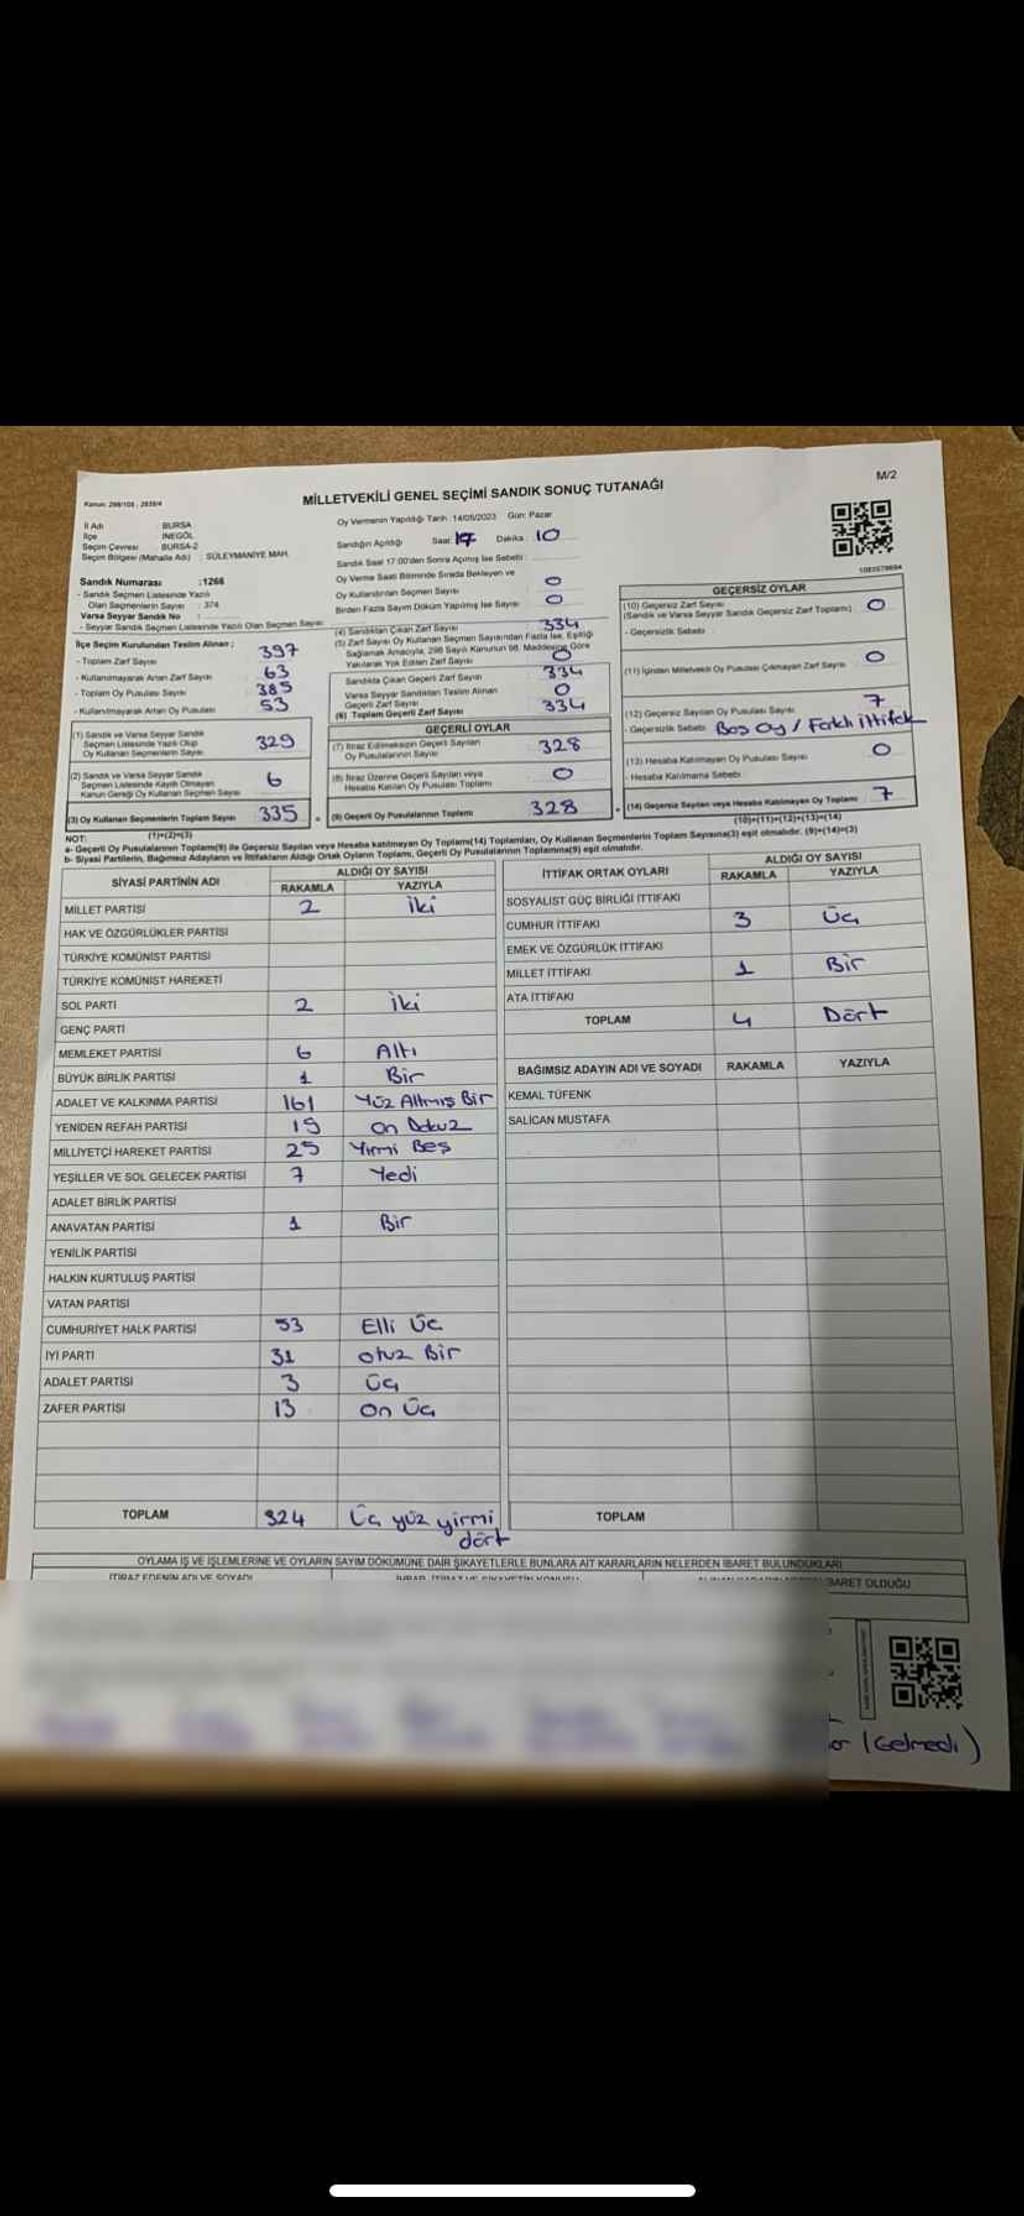 M/2
Kanun: 298/105 ; 2839/4
MİLLETVEKİLİ GENEL SEÇİMİ SANDIK SONUÇ TUTANAĞI
İl Adı BURSA
İlçe İNEGÖL
Seçim Çevresi BURSA-2
Seçim Bölgesi (Mahalle Adı) : SÜLEYMANİYE MAH.
Sandık Numarası :1266
- Sandık Seçmen Listesinde Yazılı
Olan Seçmenlerin Sayısı : 374
Varsa Seyyar Sandık No :
- Seyyar Sandık Seçmen Listesinde Yazılı Olan Seçmen Sayısı
İlçe Seçim Kurulundan Teslim Alınan ;
- Toplam Zarf Sayısı 397
- Kullanılmayarak Artan Zarf Sayısı 63
- Toplam Oy Pusulası Sayısı 385
- Kullanılmayarak Artan Oy Pusulası 53
(1) Sandık ve Varsa Seyyar Sandık
Seçmen Listesinde Yazılı Olup
Oy Kullanan Seçmenlerin Sayısı 329
(2) Sandık ve Varsa Seyyar Sandık
Seçmen Listesinde Kayıtlı Olmayan
Kanun Gereği Oy Kullanan Seçmen Sayısı 6
(3) Oy Kullanan Seçmenlerin Toplam Sayısı 335
(1)+(2)=(3)
Oy Vermenin Yapıldığı Tarih :14/05/2023 Gün: Pazar
Sandığın Açıldığı Saat: 17 Dakika : 10
Sandık Saat 17:00'den Sonra Açılmış İse Sebebi :
Oy Verme Saati Bitiminde Sırada Bekleyen ve
Oy Kullandırılan Seçmen Sayısı 0
Birden Fazla Sayım Döküm Yapılmış İse Sayısı 0
(4) Sandıktan Çıkan Zarf Sayısı 334
(5) Zarf Sayısı Oy Kullanan Seçmen Sayısından Fazla İse, Eşitliği
Sağlamak Amacıyla, 298 Sayılı Kanunun 98. Maddesine Göre
Yakılarak Yok Edilen Zarf Sayısı 0
Sandıkta Çıkan Geçerli Zarf Sayısı 334
Varsa Seyyar Sandıktan Teslim Alınan
Geçerli Zarf Sayısı 0
(6) Toplam Geçerli Zarf Sayısı 334
GEÇERLİ OYLAR
(7) İtiraz Edilmeksizin Geçerli Sayılan
Oy Pusulalarının Sayısı 328
(8) İtiraz Üzerine Geçerli Sayılan veya
Hesaba Katılan Oy Pusulası Toplamı 0
(9) Geçerli Oy Pusulalarının Toplamı 328
GEÇERSİZ OYLAR
(10) Geçersiz Zarf Sayısı
(Sandık ve Varsa Seyyar Sandık Geçersiz Zarf Toplamı) 0
- Geçersizlik Sebebi
(11) İçinden Milletvekili Oy Pusulası Çıkmayan Zarf Sayısı 0
(12) Geçersiz Sayılan Oy Pusulası Sayısı 7
- Geçersizlik Sebebi Boş Oy / Farklı ittifak
(13) Hesaba Katılmayan Oy Pusulası Sayısı 0
- Hesaba Katılmama Sebebi
(14) Geçersiz Sayılan veya Hesaba Katılmayan Oy Toplamı 7
(10)+(11)+(12)+(13)=(14)
NOT:
a- Geçerli Oy Pusulalarının Toplamı(9) ile Geçersiz Sayılan veya Hesaba katılmayan Oy Toplamı(14) Toplamları, Oy Kullanan Seçmenlerin Toplam Sayısına(3) eşit olmalıdır. (9)+(14)=(3)
b- Siyasi Partilerin, Bağımsız Adayların ve İttifakların Aldığı Ortak Oyların Toplamı, Geçerli Oy Pusulalarının Toplamına(9) eşit olmalıdır.
SİYASİ PARTİNİN ADI ALDIĞI OY SAYISI
RAKAMLA YAZIYLA
MİLLET PARTİSİ 2 iki
HAK VE ÖZGÜRLÜKLER PARTİSİ
TÜRKİYE KOMÜNİST PARTİSİ
TÜRKİYE KOMÜNİST HAREKETİ
SOL PARTİ 2 iki
GENÇ PARTİ
MEMLEKET PARTİSİ 6 Altı
BÜYÜK BİRLİK PARTİSİ 1 Bir
ADALET VE KALKINMA PARTİSİ 161 Yüz Altmış Bir
YENİDEN REFAH PARTİSİ 19 on Dokuz
MİLLİYETÇİ HAREKET PARTİSİ 25 Yirmi Beş
YEŞİLLER VE SOL GELECEK PARTİSİ 7 Yedi
ADALET BİRLİK PARTİSİ
ANAVATAN PARTİSİ 1 Bir
YENİLİK PARTİSİ
HALKIN KURTULUŞ PARTİSİ
VATAN PARTİSİ
CUMHURİYET HALK PARTİSİ 53 Elli Üç
İYİ PARTİ 31 otuz Bir
ADALET PARTİSİ 3 Üç
ZAFER PARTİSİ 13 on Üç
TOPLAM 324 Üç yüz yirmi dört
İTTİFAK ORTAK OYLARI ALDIĞI OY SAYISI
RAKAMLA YAZIYLA
SOSYALİST GÜÇ BİRLİĞİ İTTİFAKI
CUMHUR İTTİFAKI 3 Üç
EMEK VE ÖZGÜRLÜK İTTİFAKI
MİLLET İTTİFAKI 1 Bir
ATA İTTİFAKI
TOPLAM 4 Dört
BAĞIMSIZ ADAYIN ADI VE SOYADI RAKAMLA YAZIYLA
KEMAL TÜFENK
SALİCAN MUSTAFA
TOPLAM
OYLAMA İŞ VE İŞLEMLERİNE VE OYLARIN SAYIM DÖKÜMÜNE DAİR ŞİKAYETLERLE BUNLARA AİT KARARLARIN NELERDEN İBARET BULUNDUKLARI
İTİRAZ EDENİN ADI VE SOYADI
(Gelmedi)